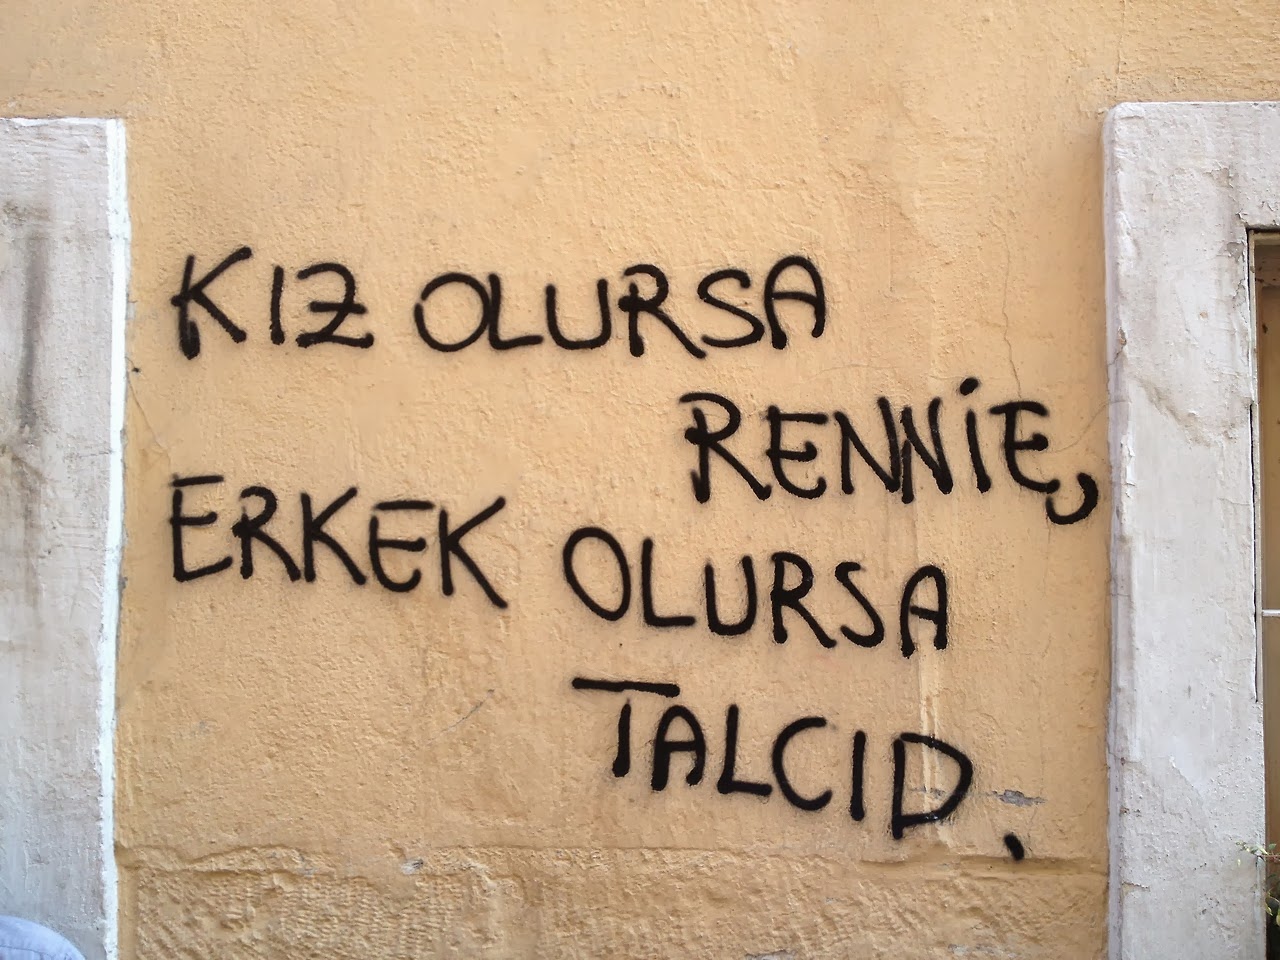 KIZ OLURSA
RENNİE,
ERKEK OLURSA
TALCID.